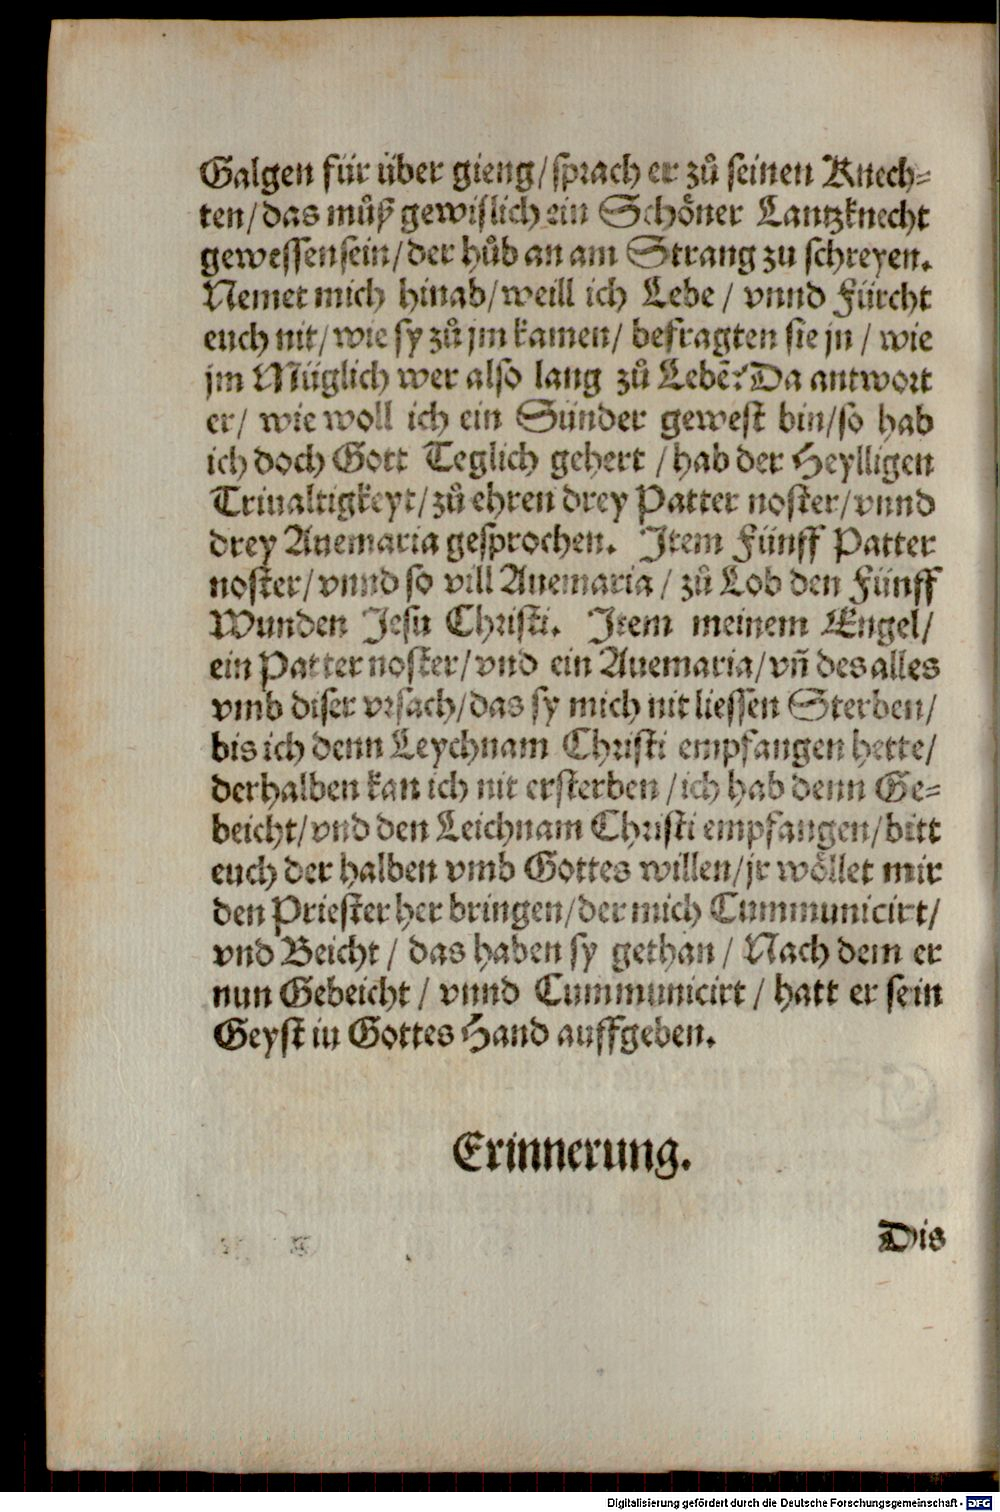 Galgen für über gieng/sprach er zů seinen Knech-
ten/das můß gewislich ein Schöner Lantzknecht
gewessen sein/der hůb an am Strang zu schreyen.
Nemet mich hinab/weill ich Lebe / vnnd Fürcht
euch nit/wie sy zů jm kamen/ befragten sie jn / wie
jm Müglich wer also lang zů Lebē? Da antwort
er/ wie woll ich ein Sünder gewest bin/so hab
ich doch Gott Teglich gehert /hab der Heylligen
Triualtigkeyt/zů ehren drey Patter noster/vnnd
drey Auemaria gesprochen. Item Fünff Patter
noster/vnnd so vill Auemaria / zů Lob den Fünff
Wunden Jesu Christi. Item meinem Engel/
ein Patter noster/vnd ein Auemaria/vñ des alles
vmb diser vrsach/das sy mich nit liessen Sterben/
bis ich denn Leychnam Christi empfangen hette/
derhalben kan ich nit ersterben /ich hab denn Ge-
beicht/vnd den Leichnam Christi empfangen/bitt
euch der halben vmb Gottes willen/jr wöllet mir
den Priester her bringen/der mich Cummunicirt/
vnd Beicht / das haben sy gethan / Nach dem er
nun Gebeicht / vnnd Cummunicirt / hatt er sein
Geyst in Gottes Hand auffgeben.
Erinnerung.
Dis
Digitalisierung gefördert durch die Deutsche Forschungsgemeinschaft - DFG